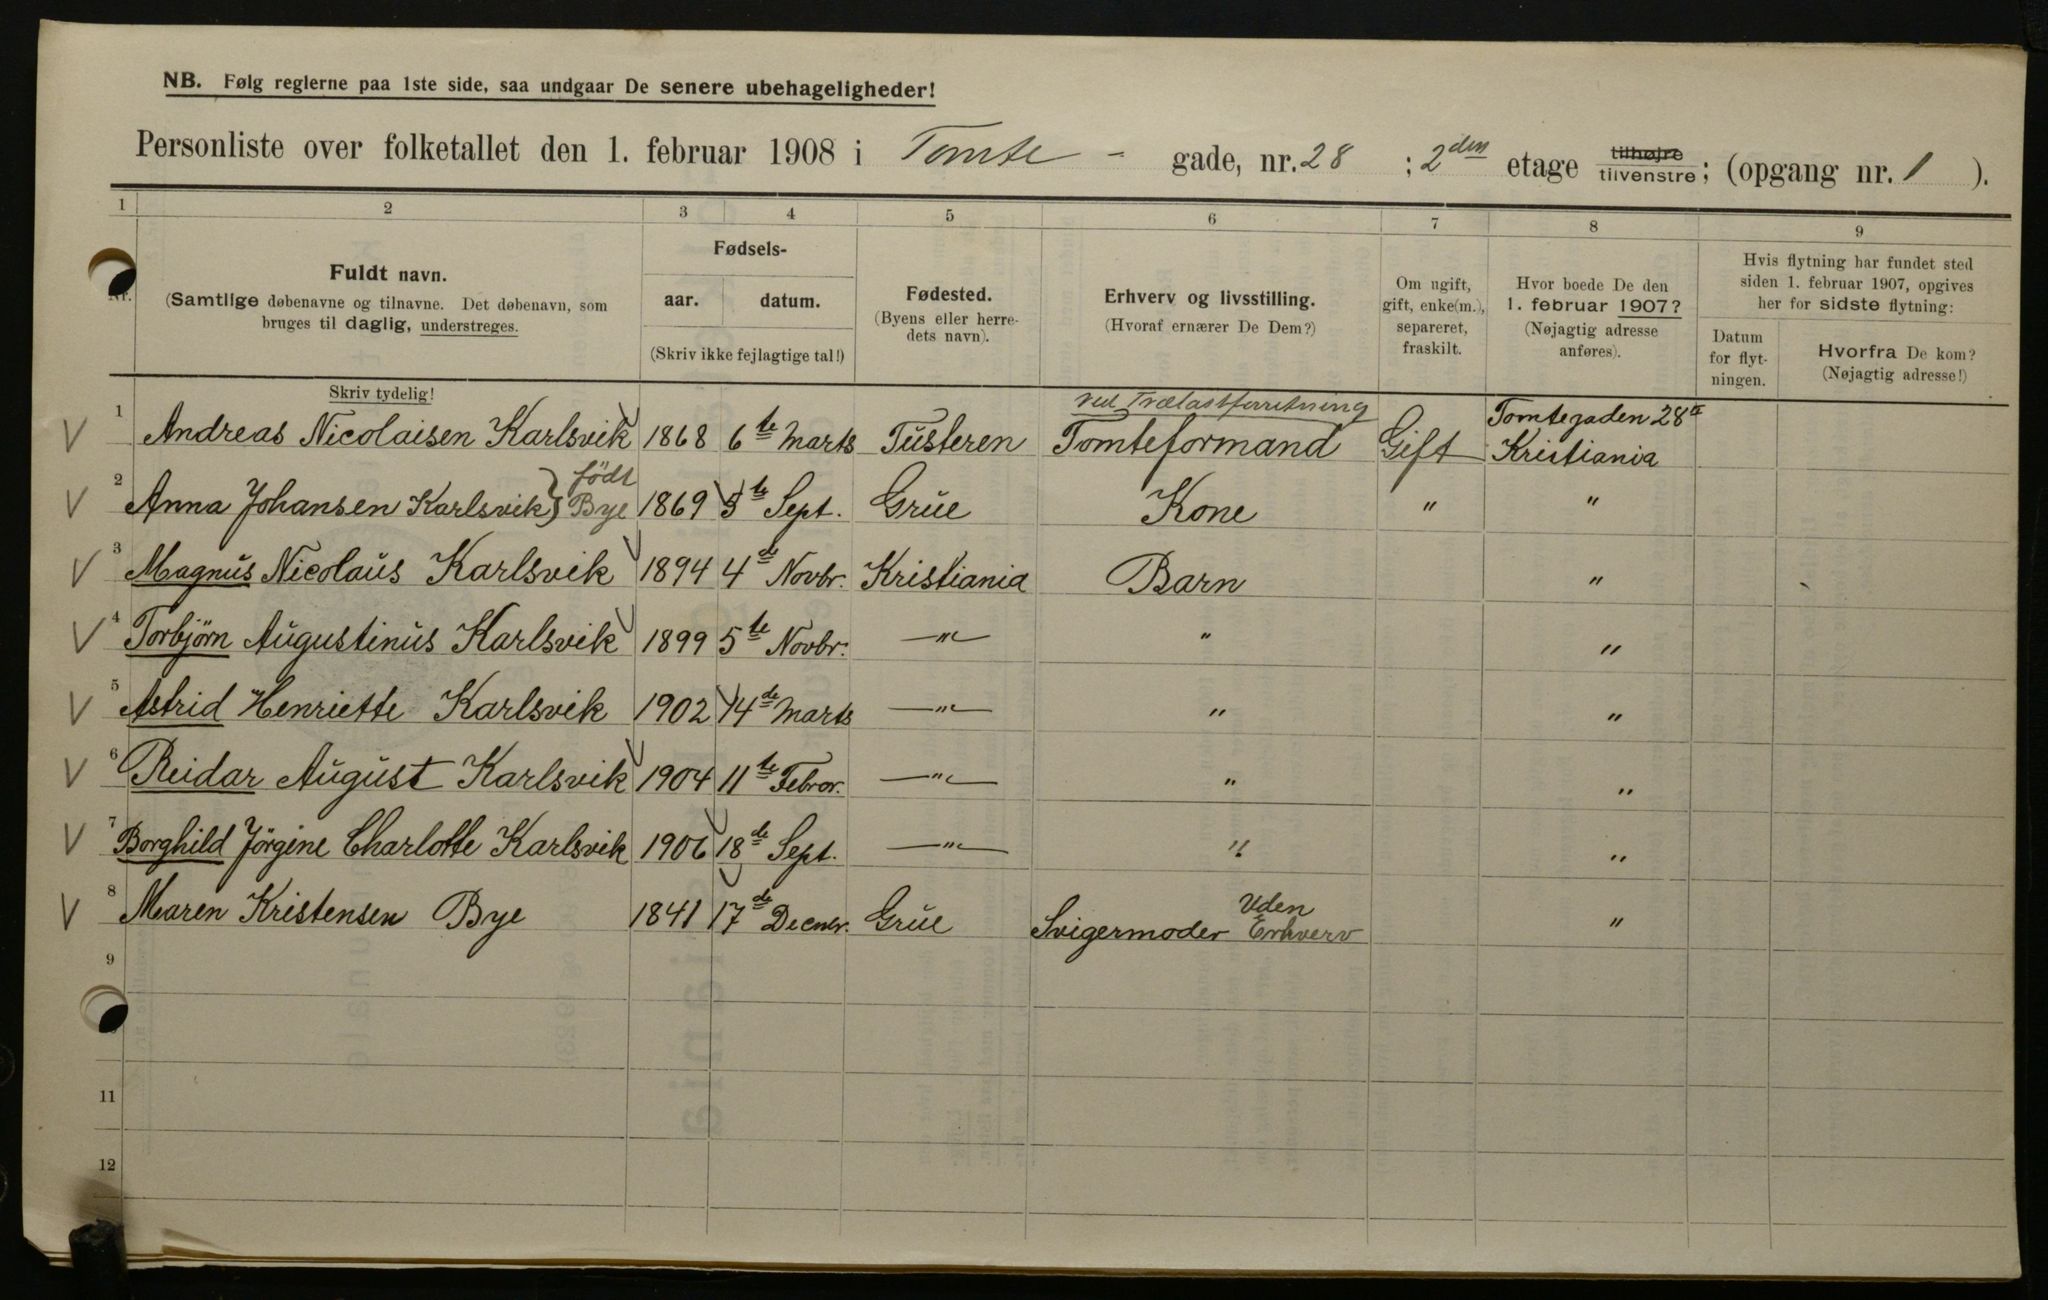 NB. Følg reglerne paa 1ste side, saa undgaar De senere ubehageligheder!
Personliste over folketallet den 1. februar 1908 i Tomte - gade, nr. 28 ; 2den etage tilhøjre tilvenstre; (opgang nr. 1 ).
1 2 3 4 5 6 7 8 9
Nr.
Fuldt navn.
(Samtlige døbenavne og tilnavne. Det døbenavn, som
bruges til daglig, understreges.
Skriv tydelig!
Fødsels-
aar. datum.
(Skriv ikke fejlagtige tal!)
Fødested.
(Byens eller herre-
dets navn).
Erhverv og livsstilling.
(Hvoraf ernærer De Dem?)
Om ugift,
gift, enke(m.),
separeret,
fraskilt.
Hvor boede De den
1. februar 1907?
(Nøjagtig adresse
anføres).
Hvis flytning har fundet sted
siden 1. februar 1907, opgives
her for sidste flytning:
Datum
for flyt-
ningen.
Hvorfra De kom?
(Nøjagtig adresse!)
ved Trælastforretning Tomtegaden 28a
1 Andreas Nicolaisen Karlsvik 1868 6te Marts Tüsteren Tomteformand Gift Kristiania
født
2 Anna Johansen Karlsvik} Bye 1869 5te Sept. Grüe Kone " "
3 Magnüs Nicolaüs Karlsvik 1894 4de Novbr. Kristiania Barn "
4 Torbjørn Augustinüs Karlsvik 1899 5te Novbr. —"— " "
5 Astrid Henriette Karlsvik 1902 14de Marts —"— " "
6 Reidar August Karlsvik 1904 11te Febror. —"— " "
7 Borghild Jörgine Charlotte Karlsvik 1906 18de Sept. —"— " "
Uden
8 Maren Kristensen Bye 1841 17de Decmbr. Grüe Svigermoder Erhverv "
9
11
12